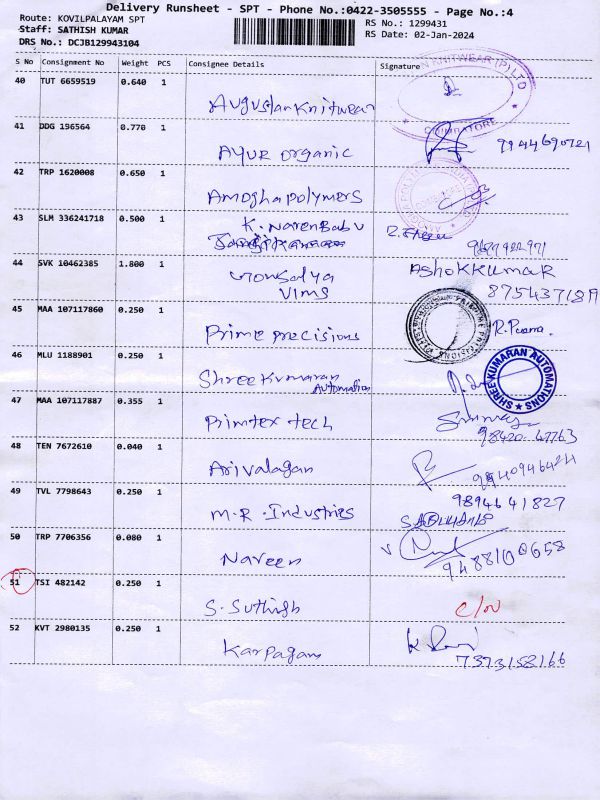 Delivery Runsheet - SPT - Phone No.:0422-3505555 - Page No.:4
Route: KOVILPALAYAM SPT RS No.: 1299431
Staff: SATHISH KUMAR RS Date: 02-Jan-2024
DRS No.: DCJB129943104
S No Consignment No Weight PCS Consignee Details Signature
40 TUT 6659519 0.640 1 Augustan Knitwear
KNITWEAR (P) LTD
COIMBATORE
41 DDG 196564 0.770 1 AYUR organic
42 TRP 1620008 0.650 1 Amogha polymers
43 SLM 336241718 0.500 1 K. Naren Babu
44 SVK 10462385 1.800 1 Gowsalya ASHOKKUMAR
VIMS
45 MAA 107117860 0.250 1 Prime precisions
46 MLU 1188901 0.250 1 Shree Kumaran
Automation
SHREE KUMARAN AUTOMATIONS
47 MAA 107117887 0.355 1 Primtex tech
98420 47763
48 TEN 7672610 0.040 1 Arivalagan
49 TVL 7798643 0.250 1 M.R. Industries
9894641827
50 TRP 7706356 0.080 1 Naveen
51 TSI 482142 0.250 1 S. Suthish
52 KVT 2980135 0.250 1 Karpagam
7373158166